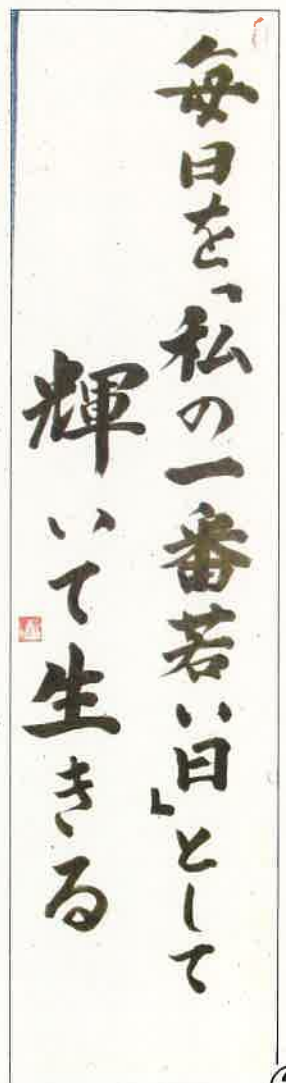 毎日を「私の一番若い日」として
輝いて生きる